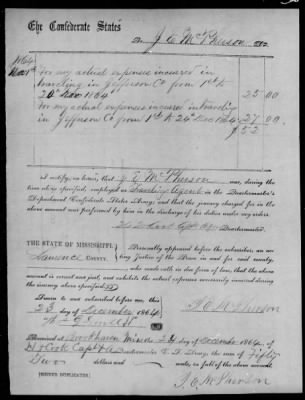 The Confederate States
To J. E. McPherson Dr.
1864
For my actual expenses incurred in
traveling in Jefferson Co from 1st to
24th Nov 1864 25 00
For my actual expenses incurred in traveling
in Jefferson Co from 1st to 24 Dec 1864 27 00
$52
I certify, on honor, that J. E. McPherson was, during the
time above specified, employed as Agent in the Quartermaster's
Department Confederate States Army; and that the journey charged for in the above
account was performed by him in the discharge of his duties under my orders.
Quartermaster.
THE STATE OF MISSISSIPPI,
Lawrence COUNTY.
Personally appeared before the subscriber, an acting
Justice of the Peace in and for said county,
who made oath in due form of law, that the above
account is correct and just, and exhibits the actual expenses necessarily incurred during
the journey above specified.
Sworn to and subscribed before me, this
23 day of December 1864
J. E. McPherson
Received at Brookhaven Miss the 23 of December 1864, of
Capt & A Quartermaster C. S. Army, the sum of Fifty
Two dollars and cents,
J. E. McPherson
[SIGNED DUPLICATES.]